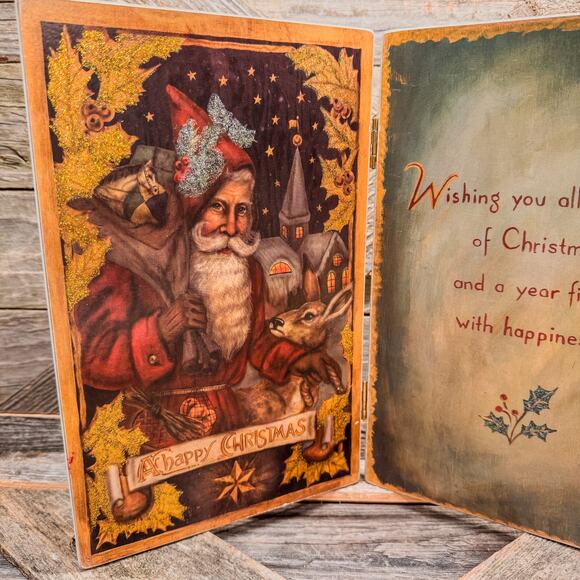 A happy CHRISTMAS
Wishing you all
of Christm
and a year fi
with happine